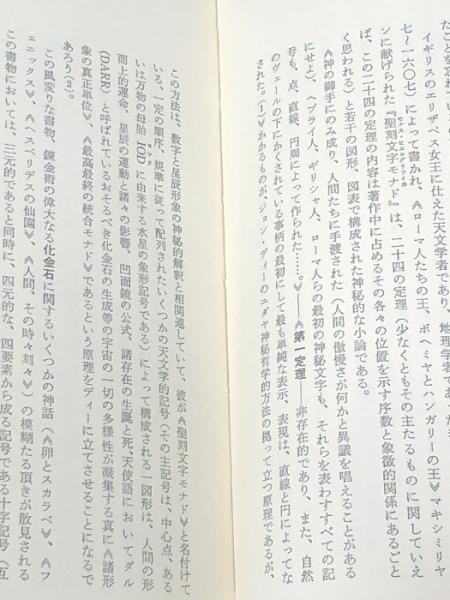 たことを忘れ
イギリスのエリザベス女王に仕えた天文学者であり、地理学者であ
七〜一六〇七)によって書かれ、《ローマ人たちの王、ボヘミヤとハンガリーの王》マキシミリヤ
ンに献げられた『聖刻文字モナド』は、二十四の定理(少なくともその主たるものに関していえ
ば、この二十四の定理の内容は著作中に占めるその各々の位置を示す序数と象徴的関係にあるごと
く思われる)と若干の図形、図表で構成された神秘的な小論である。
《神の御手にのみ成り、人間たちに手渡された(人間の傲慢さが何かと異議を唱えることがある
にせよ)、ヘブライ人、ギリシャ人、ローマ人らの最初の神秘文字も、それらを表わすすべての記
号も、点、直線、円周によって作られた……》――《第一定理――非存在的であり、また、自然
のヴェールの下にかくされている事柄の最初にして最も単純な表示、表現は、直線と円によってな
された。(1)》かかるものが、ジョン・ディーのユダヤ神秘哲学的方法の拠って立つ原理であるが、
この方法は、数字と星辰形象の神秘的解釈と相関連していて、彼が《聖刻文字モナド》と名付けて
いる、一定の順序、規準に従って配列されたいくつかの天文学的記号(その主記号は、中心点、ある
いは万物の母胎 IOD に由来する水星の象形記号である)によって構成される一図形は、人間の形
而上的運命、星辰の運動と諸々の影響、凹面鏡の公式、諸存在の生誕と死、天使語においてダル
(DARR)と呼ばれているおそるべき化金石の生成等の宇宙の一切の多様性が凝集する真に《諸形
象の真正単位》、《最高最終の統合モナド》であるという原理をディーに立てさせることになるで
あろう(2)。
この風変りな書物、錬金術の偉大なる化金石に関するいくつかの神話(《卵とスカラベ》、《フ
ェニックス》、《ヘスペリデスの仙園》、《人間、その時々刻々》)の模糊たる頂きが散見される
この書物においては、三元的であると同時に、四元的な、四要素から成る記号である十字記号(互